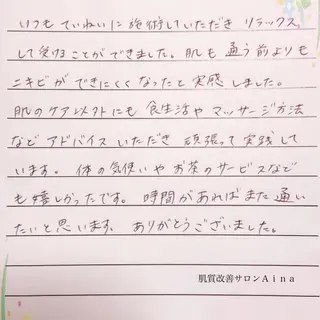 いつもていねいに施術していただき リラックス
して受けることができました。肌も 通う前よりも
ニキビができにくくなったと実感しました。
肌のケア以外にも 食生活や マッサージ方法
など アドバイス いただき 頑張って 実践して
います。 体の気使いや お茶のサービスなど
も嬉しかったです。 時間があればまた通い
たいと思います。 ありがとうございました。
肌質改善サロンAina